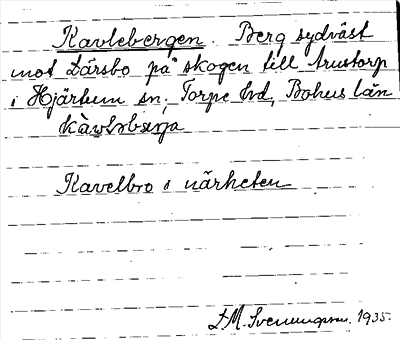 Kavlebergen. Berg sydväst
mot Lärsbo på skogen till trustorp
i Hjärtum sn, Torpe hd, Bohus län
Kavelbro i närheten
S.M. Svenungson. 1935.